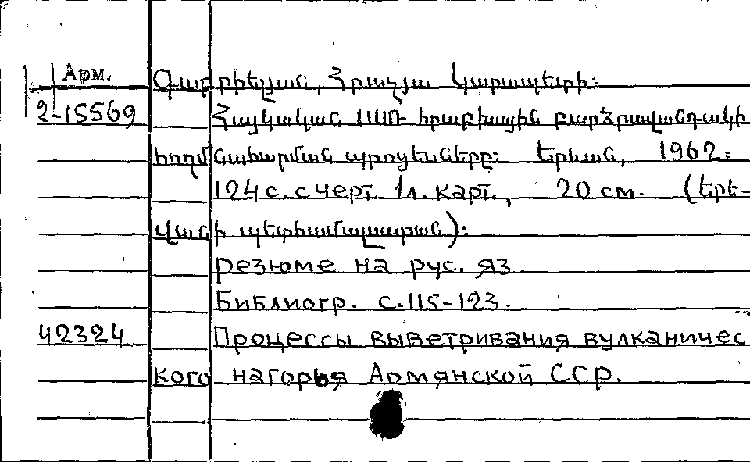 Арм. Գաբրիելյան, Հրաչյա Կարապետի:
2-15569 Հայկական ՍՍՌ հրաբխային բարձրավանդակի
հողմնահարման պրոցեսները: Երևան, 1962:
124 с. с черт. 1 л. карт., 20 см. (Երե-
վանի պետհամալսարան):
резюме на рус. яз.
Библиогр. с. 115-123.
42324 Процессы выветривания вулканичес
кого нагорья Армянской ССР.